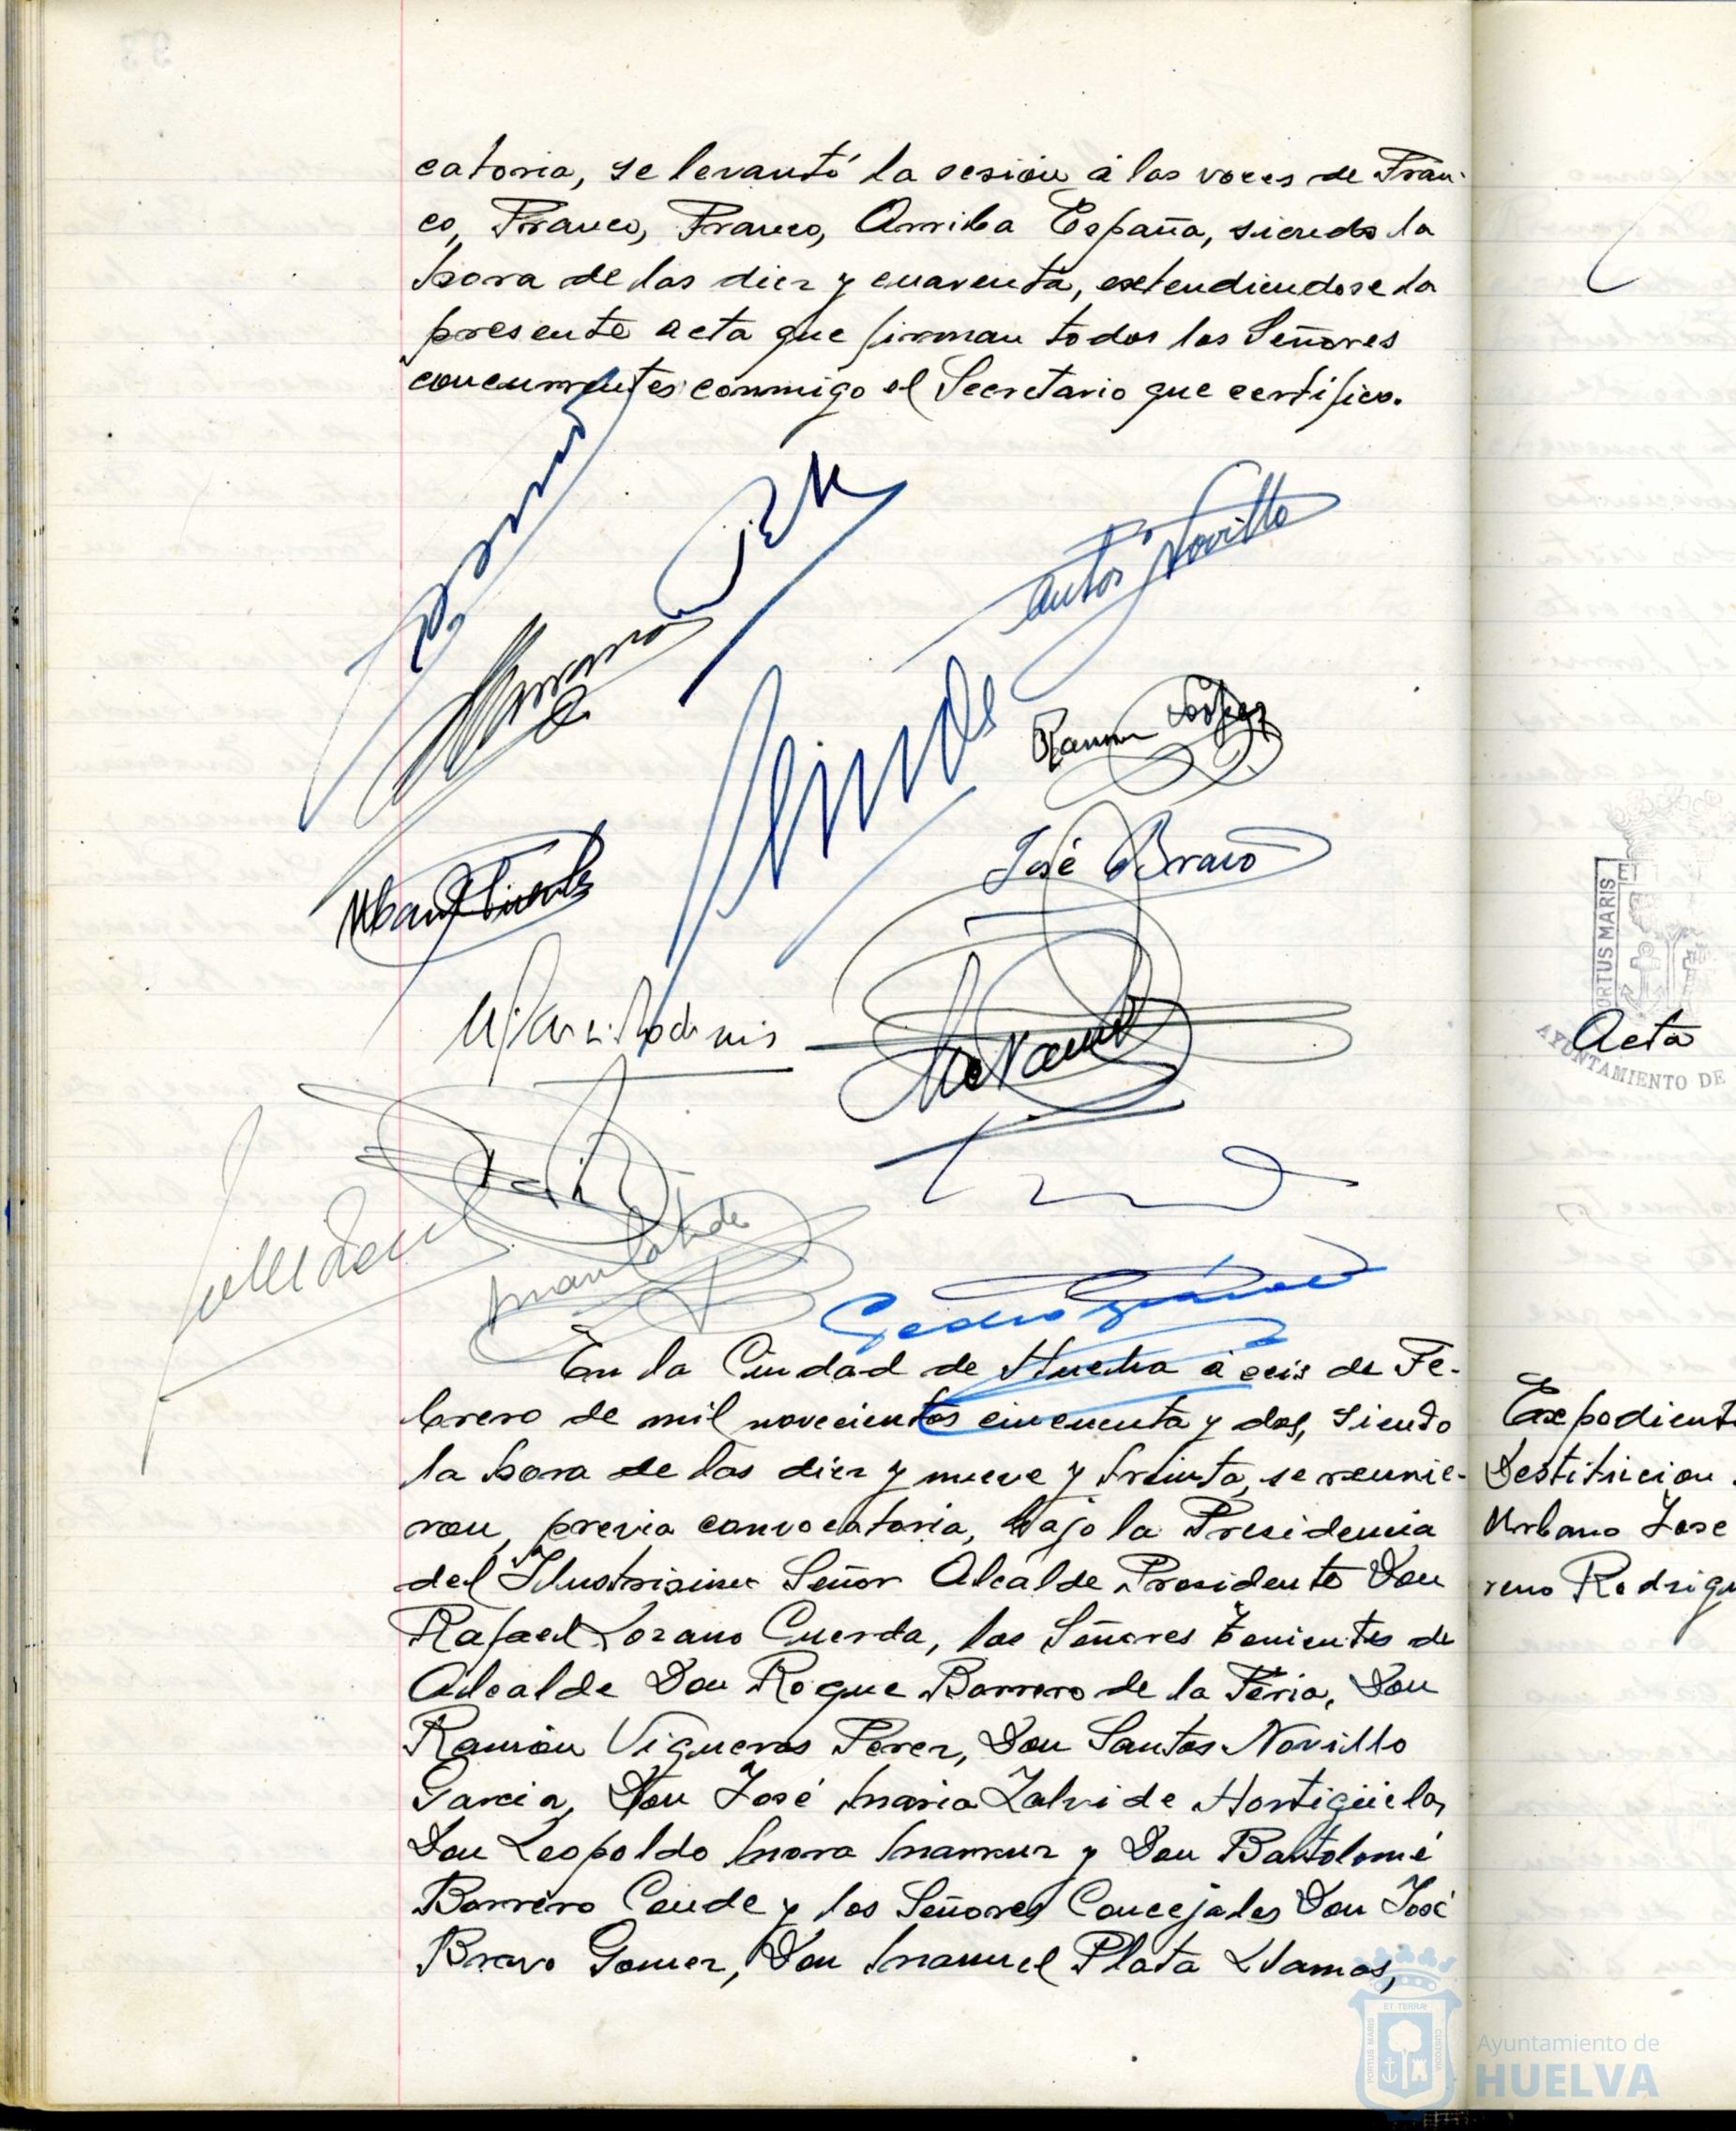 catoria, se levantó la sesión á las voces de Fran-
co, Franco, Franco, Arriba España, siendo la
hora de las diez y cuarenta, extendiendose la
presente acta que firman todos los Señores
concurrentes conmigo el Secretario que certifico.
Santos Novillo
Ramon
José Bravo
En la Ciudad de Huelva á seis de Fe-
brero de mil novecientos cincuenta y dos, siendo
la hora de las diez y nueve y treinta, se reunie-
ron, previa convocatoria, bajo la Presidencia
del Ilustrisimo Señor Alcalde Presidente Don
Rafael Lozano Cuerda, los Señores Tenientes de
Alcalde Don Roque Barrero de la Feria, Don
Ramón Vigueras Perez, Don Santos Novillo
Garcia, Don José Maria Zalvide Hortigüela,
Don Leopoldo Mora Marruz y Don Bartolomé
Borrero Conde y los Señores Concejales Don José
Bravo Gomez, Don Manuel Plata Llamas,
PORTUS MARIS
ET
Acta
AYUNTAMIENTO DE
Expediente
Destitucion
Urbano Jose
reno Rodrigu
ET TERRAE
PORTUS MARIS
CUSTODIA
Ayuntamiento de
HUELVA